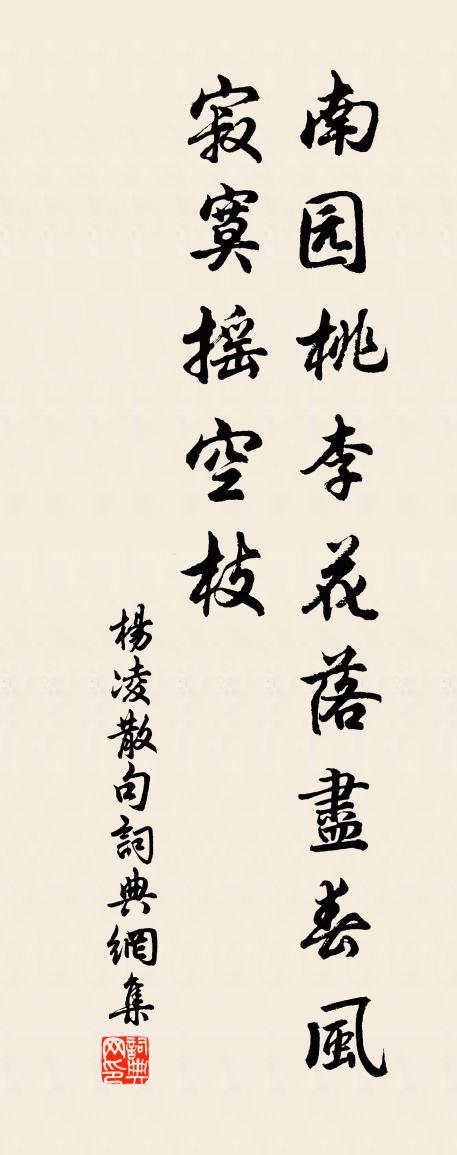 南园桃李花落盡春風
寂寞摇空枝
楊凌散句詞典網集
詞典网印